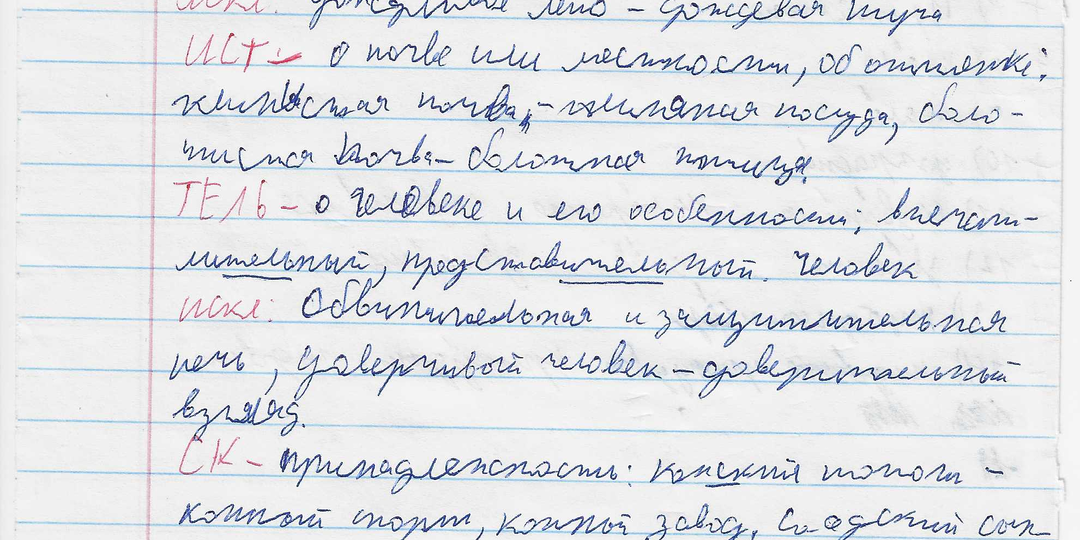 искл: дождливое лето – дождевая туча
ИСТ – о почве или местности, об оттенке:
глинистая почва, – глиняная посуда, боло-
тистая почва – болотная птица.
ТЕЛЬ – о человеке и его особенности: впечат-
лительный, представительный. человек
искл: Обвинительная и защитительная
речь, доверчивый человек – доверительный
взгляд.
СК – принадлежность: конский топот –
конный спорт, конный завод.